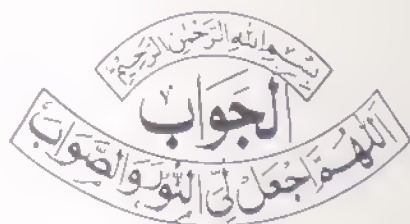 بِسْمِ اللهِ الرَّحْمٰنِ الرَّحِيْمِ
الجَوَاب
اَللّٰهُمَّ اجْعَلْ لِّىَ النُّوْرَ وَالصَّوَابَ